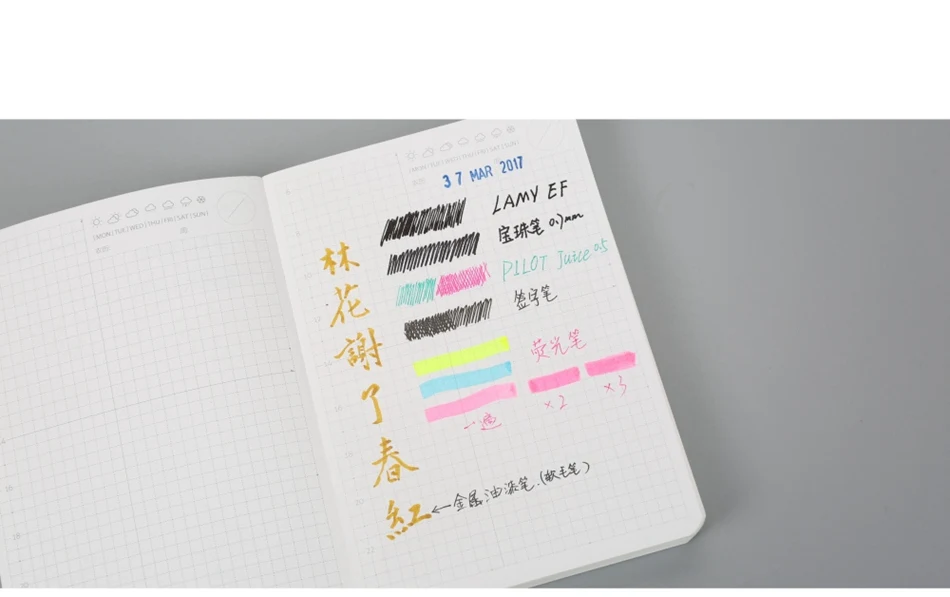 |MON|TUE|WED|THU|FRI|SAT|SUN|
|MON|TUE|WED|THU|FRI|SAT|SUN|
37 MAR 2017
LAMY EF
宝珠笔 0.7mm
PILOT Juice 0.5
签字笔
荧光笔
×2
×3
一遍
林花謝了春紅
←金属油漆笔.(软毛笔)